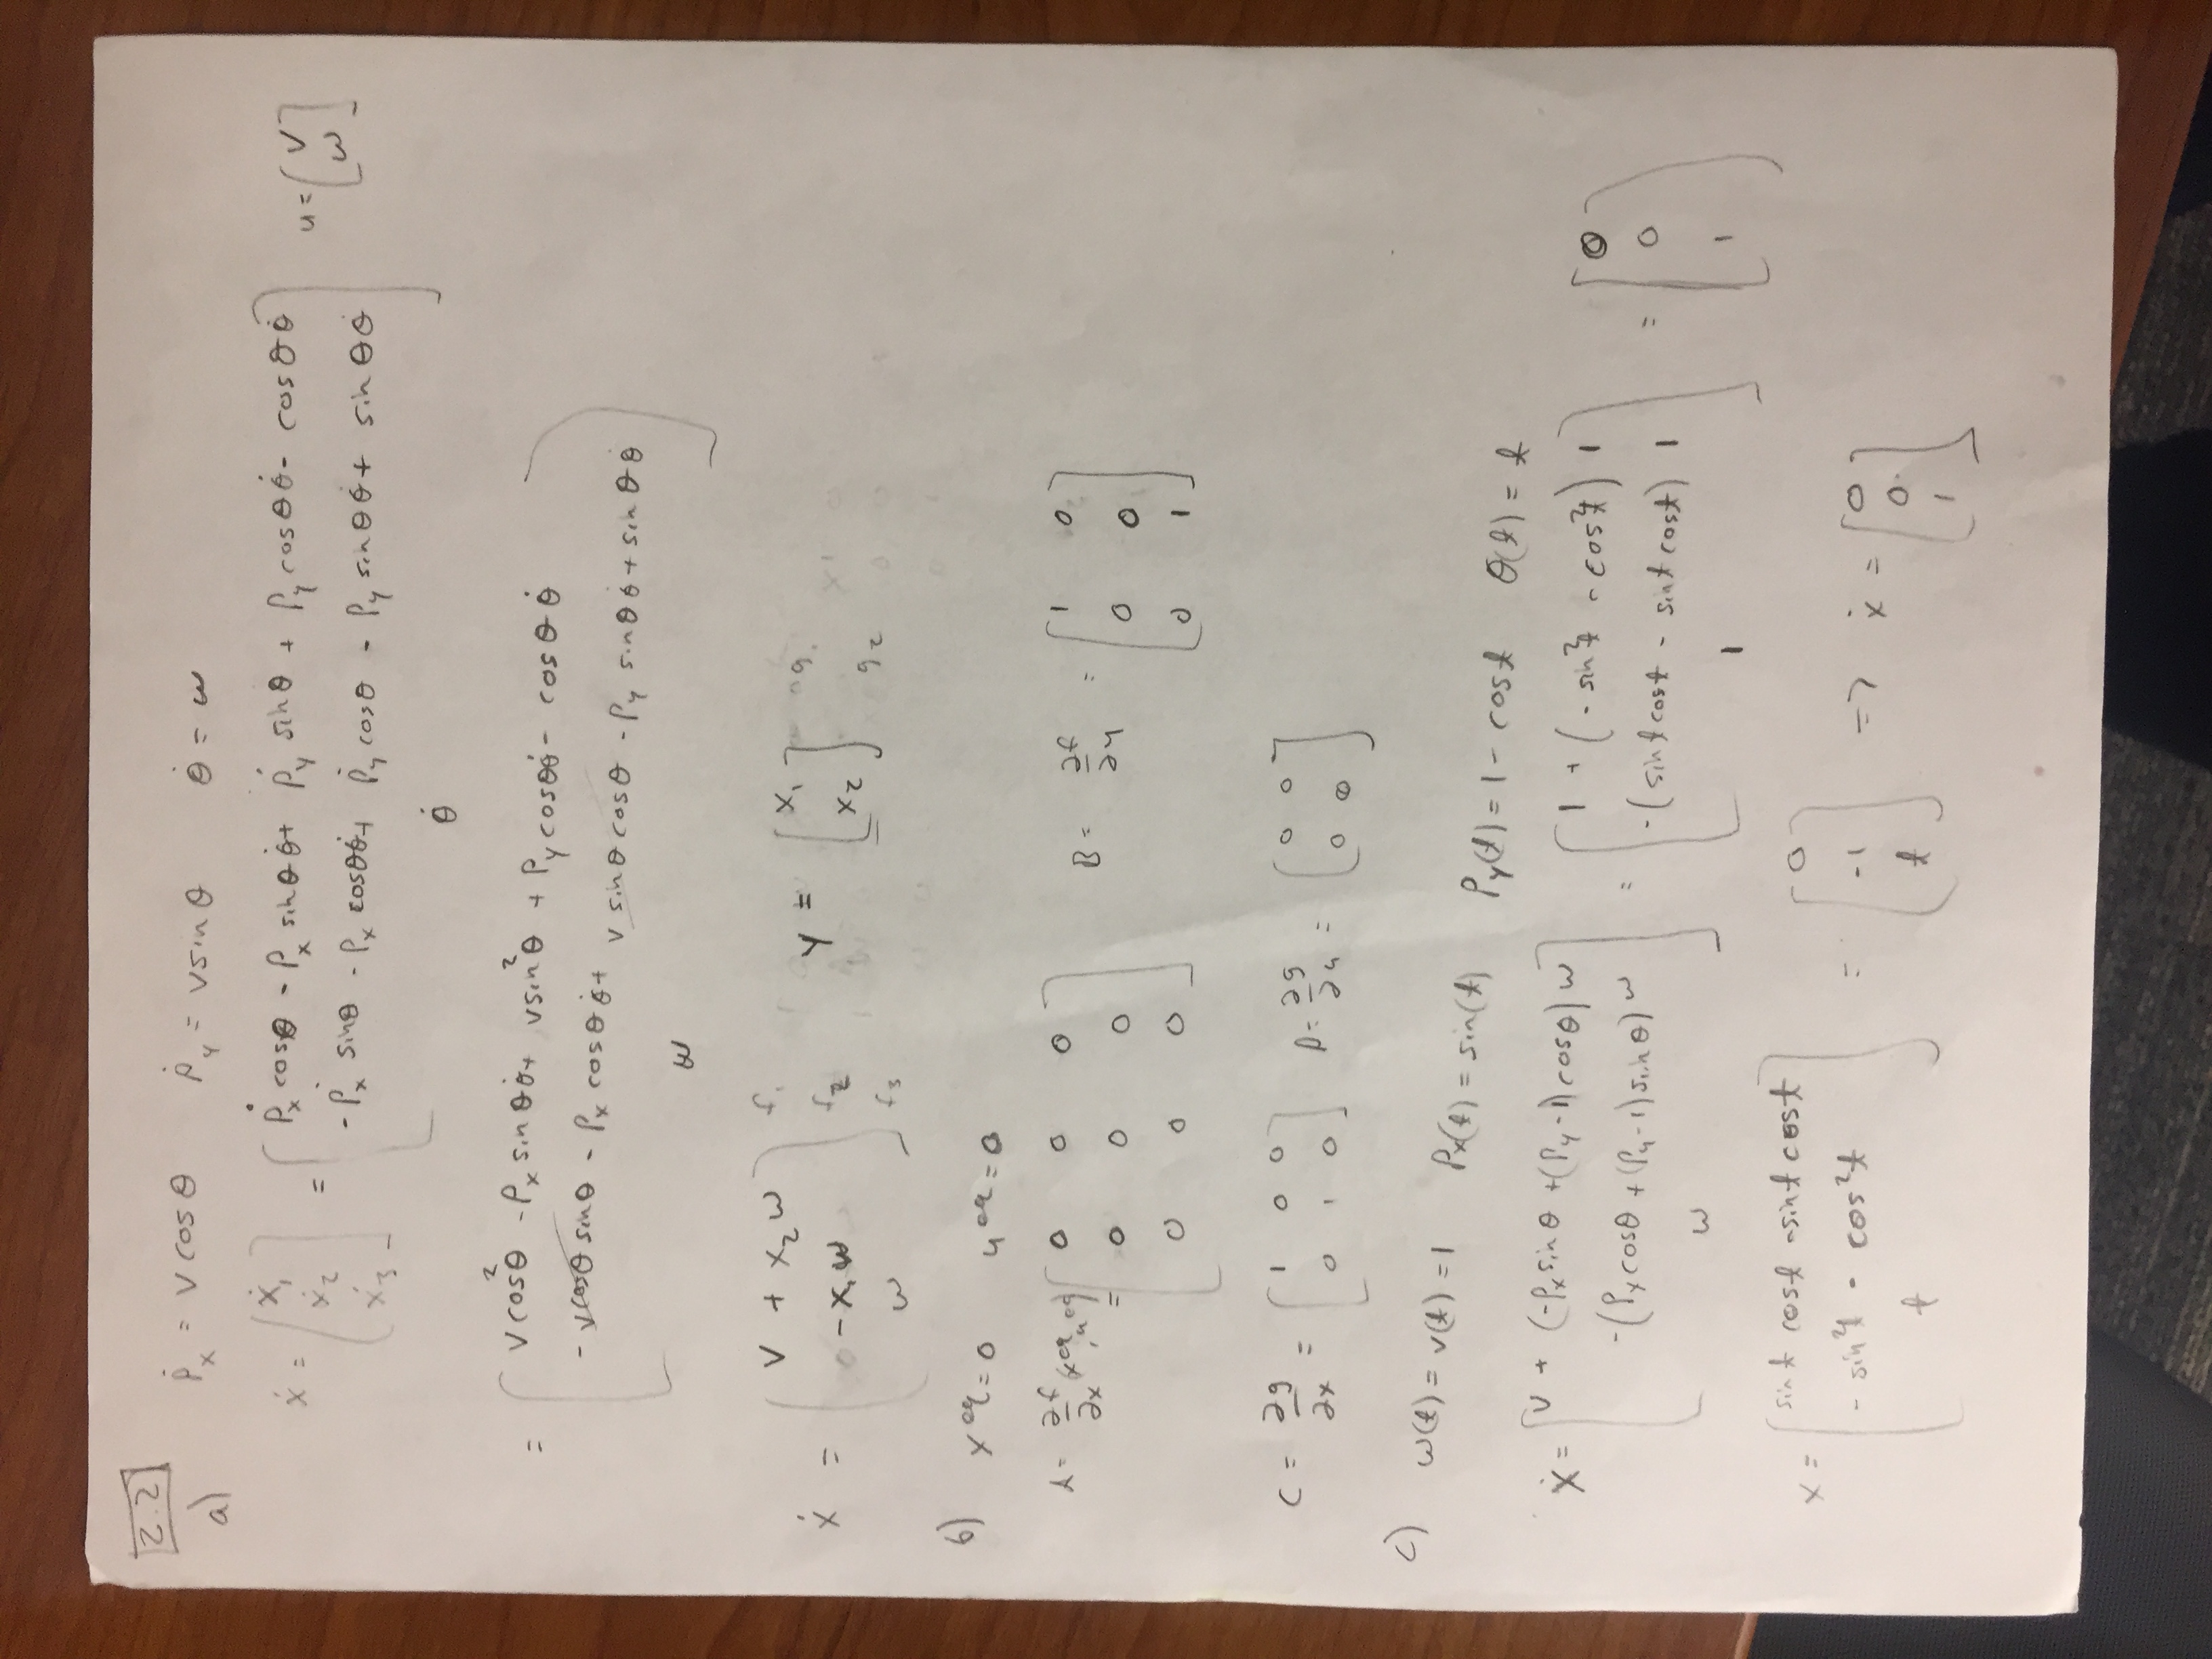 2.2
a) ṗ_x = v cos θ ṗ_y = v sin θ θ̇ = ω
ẋ = [ẋ_1; ẋ_2; ẋ_3] = [ṗ_x cos θ - p_x sin θ θ̇ + ṗ_y sin θ + p_y cos θ θ̇ - cos θ θ̇; -ṗ_x sin θ - p_x cos θ θ̇ + ṗ_y cos θ - p_y sin θ θ̇ + sin θ θ̇; θ̇] u = [v; ω]
= [v cos² θ - p_x sin θ θ̇ + v sin² θ + p_y cos θ θ̇ - cos θ θ̇; - v cos θ sin θ - p_x cos θ θ̇ + v sin θ cos θ - p_y sin θ θ̇ + sin θ θ̇; ω]
ẋ = [v + x_2 ω; -x_1 ω; ω] f_1 f_2 f_3 y = [x_1; x_2] g_1 g_2
b) x^eq = 0 u^eq = 0
A = ∂f/∂x (x^eq, u^eq) = [0 0 0; 0 0 0; 0 0 0] B = ∂f/∂u = [1 0; 0 0; 0 1]
C = ∂g/∂x = [1 0 0; 0 1 0] D = ∂g/∂u = [0 0; 0 0]
c) ω(t) = v(t) = 1 p_x(t) = sin(t) p_y(t) = 1 - cos t θ(t) = t
ẋ = [v + (-p_x sin θ + (p_y - 1) cos θ) ω; -(p_x cos θ + (p_y - 1) sin θ) ω; ω] = [1 + (- sin² t - cos² t) 1; -(sin t cos t - sin t cos t) 1; 1] = [0; 0; 1]
x = [sin t cos t - sin t cos t; - sin² t - cos² t; t] = [0; -1; t] => ẋ = [0; 0; 1]